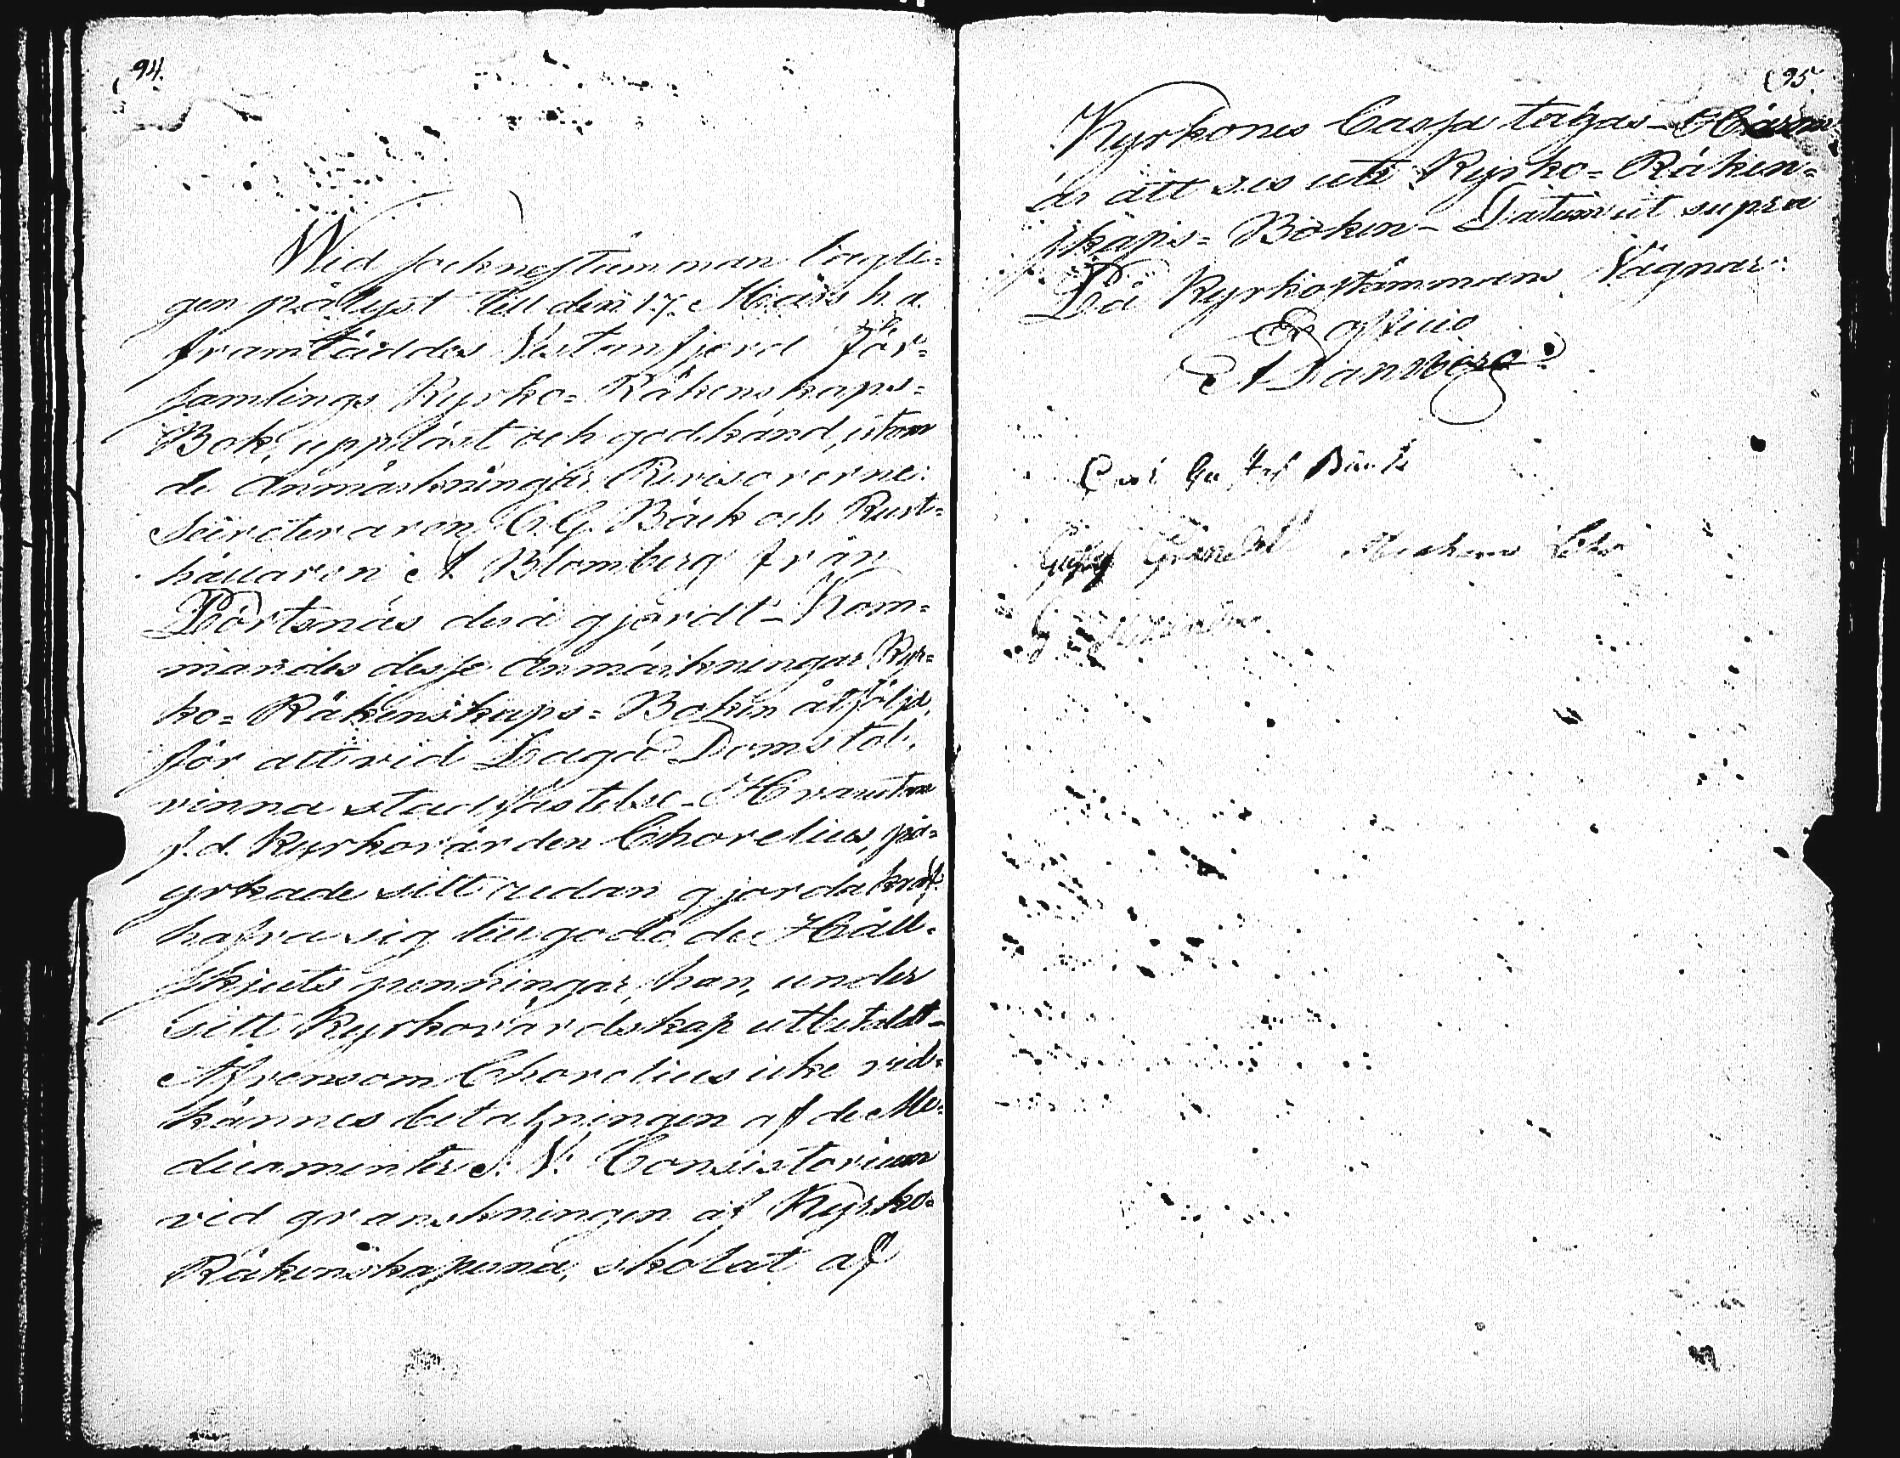 94.
Wid Socknestämman lagli-
gen pålyst till den 17. Mars h. a.
framtäddes Vestanfjerd För-
samlings Kyrko= Räkenskaps=
Bok, uppläst och godkänd, utom
de Anmärkningar Revisorerne:
Secreteraren C. G. Bäck och Rust-
hållaren A Blomberg från
Pörtsnäs derå gjordt – Kom-
mandes desse Anmärkningar Kyr-
ko= Räkenskaps= Boken åtfölja,
för att vid Laga Domstol,
vinna stadfästelse – Hvarutom
f. d. Kyrkovärden Chorelius, på-
yrkade sitt redan gjorda kraf
hafva sig tillgodo de Håll-
skjuts penningar, han, under
sitt Kyrkovärdskap utbetaldt –
Äfvensom Chorelius icke vid-
kännes betalningen af de Me-
dicamenter S. V. Consistorium
vid granskningen af Kyrko-
Räkenskaperna, skolat af
95.
Kyrkones Cassa tagas –
är att ses ute Kyrko= Räken=
skaps= Boken – Datum ut supra
På Kyrkostämmans Vägnar:
Ex officio
Carl Gustaf Bäck
Gustaf